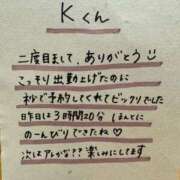 Kくん
二度目まして、ありがとう
こっそり出勤上げたのに
秒で予約してくれてビックリでした
昨日は3時間20分 ほんとに
のーんびりできたね♡
次はアレかな?? 楽しみにしてます